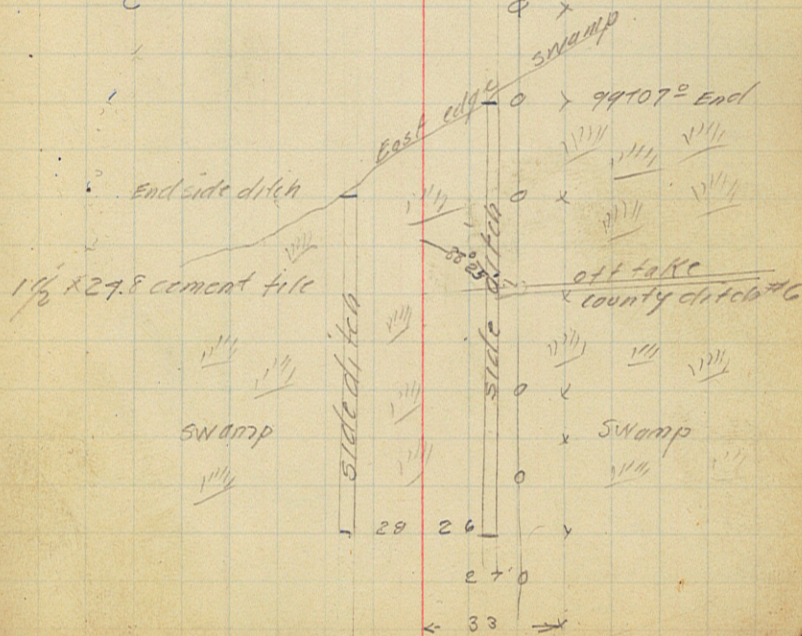 East edge swamp
99+07º End
End side ditch
88º25'
off take
county ditch #6
1½' x 24.8 cement tile
side ditch
side ditch
swamp
Swamp
28 26
27
33